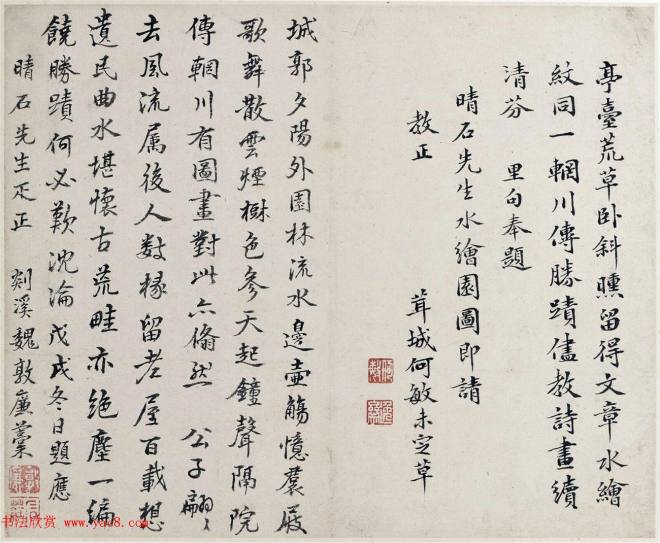 亭臺荒草卧斜曛留得文章水繪
紋同一輞川傳勝蹟儘教詩畫續
清芬 里句奉題
晴石先生水繪園圖即請
教正
茸城何敏未定草
城郭夕陽外園林流水邊壺觴憶羣屐
歌舞散雲煙樹色參天起鐘聲隔院
傳輞川有圖畫對此亦翛然 公子翩〻
去風流屬後人數椽留老屋百載想
遺民曲水堪懷古荒畦亦絶塵一編
饒勝蹟何必歎沈淪戊戌冬日題應
晴石先生疋正 剡溪魏敦廉藁
书法欣赏 www.yac8.com